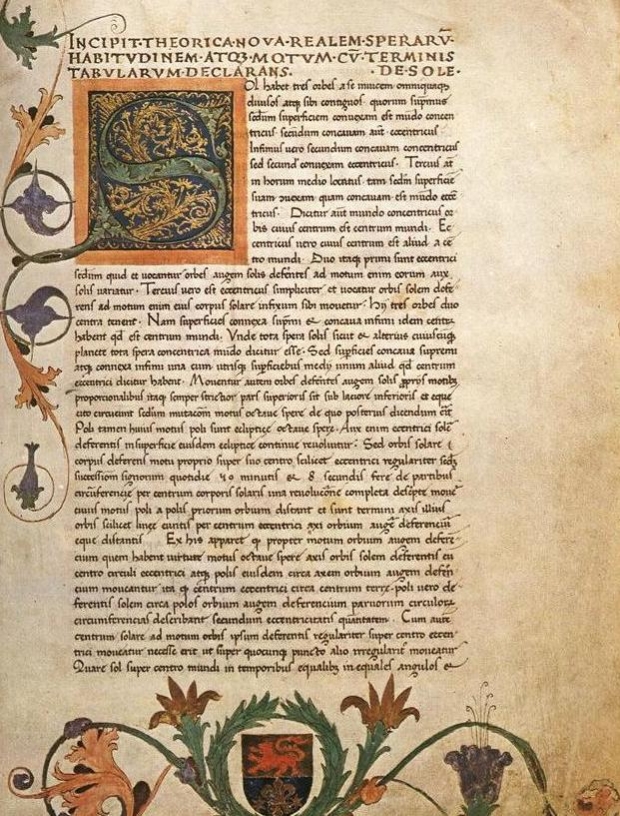 INCIPIT·THEORICA·NOVA·REALEM·SPERARṼ·
HABITVDINEM·ATQꝫ·MOTVM·CṼ·TERMINIS
TABVLARVM·DECLARANS. ·DE·SOLE·
SOl habet tres orbes a se inuicem omniquaqꝫ
diuisos atqꝫ sibi contiguos quorum supmus
sedm superficiem conuexam est mūdo concen
tricus secūdum concauam aūt eccentricus
Infimus uero secundum concauam concentricus
sed secūd conuexam eccentricus · Tercius aūt
in horum medio locatus tam sedm superficiē
suam quam concauam est mūdo eccē
tricus · Dicitur aūt mundo concentricus or
bis cuius centrum est centrum mundi · Ec
centricus uero cuius centrum est aliud a cē
tro mundi · Duo itaqꝫ primi sunt eccentrici
sedm quid et uocantur orbes augem solis deferētes ad motum enim eorum aux
solis uariatur · Tercius uero est eccentricus simpliciter et uocatur orbis solem defe
rens ad motum enim eius corpus solare infixum sibi mouetur · Hij tres orbes duo
centra tenent · Nam superficies connexa supmi & concaua infimi idem centrū
habent qd est centrum mundi · Vnde tota spera solis sicut & alterius cuiuscūqꝫ
planete tota spera concentrica mūdo dicitur esse · Sed supficies concaua supremi
atqꝫ connexa infimi una cum utrisqꝫ supficiebus medij unum aliud qd centrum
eccentrici dicitur habent · Mouentur autem orbes deferētes augem solis motibꝫ
proporcionalibus itaqꝫ semper strictior pars superioris sit sub laciore inferioris et eque
cito circueunt sedum mutacōm motus octaue spere de quo posterius dicendum erit
Poli tamen huius motus poli sunt ecliptice octaue spere · Aux enim eccentrici solē
deferentis in superficie eiusdem ecliptice continue reuoluitur · Sed orbis solare
corpus deferens motu proprio super suo centro scilicet eccentrici regulariter sedꝫ
successiōm signorum quotidie 59 minutis & 8 secundis fere de partibus
circūferencie per centrum corporis solaris una reuolucōne completa descpte moue
cuius motus poli a polis priorum orbium distant et sunt termini axis illius
orbis scilicet linee euntis per centrum eccentrici axi orbium augē deferenciū
eque distantis · Ex his apparet qꝫ propter motum orbium augem defere
cium quem habent uirtute motus octaue spere axis orbis solem deferentis cū
centro circuli eccentrici atqꝫ polis eiusdem circa axem orbium augem deferē
cium moueantur ita qꝫ centrum eccentrici circa centrum terre poli uero de
ferentis solem circa polos orbium augem deferencium paruorum circulorꝫ
circumferencias describant secundum eccentricitatis quātitatem · Cum autē
centrum solare ad motum orbis ipsum deferentis regulariter super centro eccen
trici moueatur necesse erit ut super quocunqꝫ puncto alio irregularit moueatur
Quare sol super centro mundi in temporibus equalibꝫ inequales angulos &